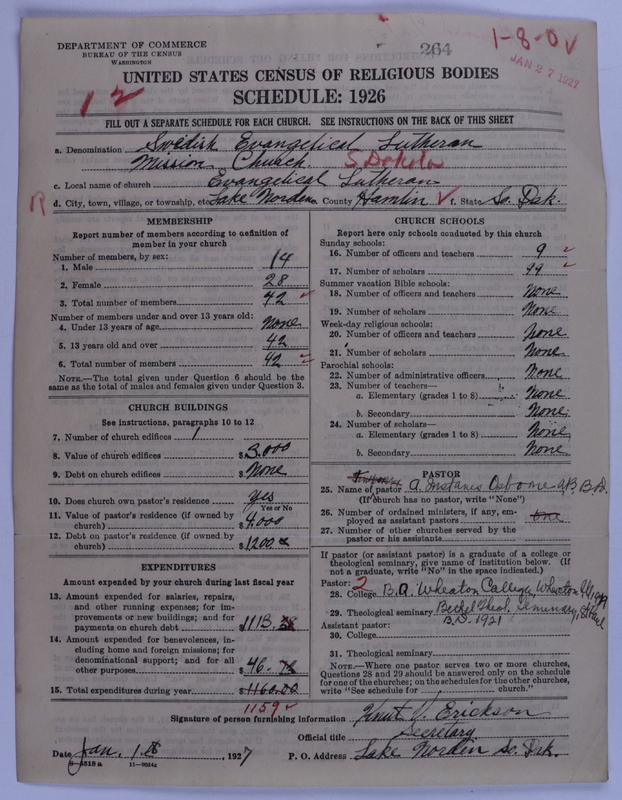 DEPARTMENT OF COMMERCE
BUREAU OF THE CENSUS
WASHINGTON
264
1-8-0 V
JAN 27 1927
UNITED STATES CENSUS OF RELIGIOUS BODIES
SCHEDULE: 1926
12
FILL OUT A SEPARATE SCHEDULE FOR EACH CHURCH. SEE INSTRUCTIONS ON THE BACK OF THIS SHEET
a. Denomination Swedish Evangelical Lutheran
Mission Church. S Dakota
c. Local name of church Evangelical Lutheran
R d. City, town, village, or township, etc. Lake Norden County Hamlin f. State So. Dak.
MEMBERSHIP
Report number of members according to definition of
member in your church
Number of members, by sex:
1. Male 14
2. Female 28
3. Total number of members 42
Number of members under and over 13 years old:
4. Under 13 years of age None
5. 13 years old and over 42
6. Total number of members 42
NOTE.—The total given under Question 6 should be the
same as the total of males and females given under Question 3.
CHURCH BUILDINGS
See instructions, paragraphs 10 to 12
7. Number of church edifices 1
8. Value of church edifices $3.000
9. Debt on church edifices $None
10. Does church own pastor's residence yes
Yes or No
11. Value of pastor's residence (if owned by
church) $4.000
12. Debt on pastor's residence (if owned by
church) $1200
EXPENDITURES
Amount expended by your church during last fiscal year
13. Amount expended for salaries, repairs,
and other running expenses; for im-
provements or new buildings; and for
payments on church debt $1113.
14. Amount expended for benevolences, in-
cluding home and foreign missions; for
denominational support; and for all
other purposes $46.
15. Total expenditures during year $1160.00
1159
CHURCH SCHOOLS
Report here only schools conducted by this church
Sunday schools:
16. Number of officers and teachers 9
17. Number of scholars 99
Summer vacation Bible schools:
18. Number of officers and teachers None
19. Number of scholars None
Week-day religious schools:
20. Number of officers and teachers None
21. Number of scholars None
Parochial schools:
22. Number of administrative officers None
23. Number of teachers—
a. Elementary (grades 1 to 8) None
b. Secondary None
24. Number of scholars—
a. Elementary (grades 1 to 8) None
b. Secondary None
PASTOR
25. Name of pastor A. Osborne A.B. B.D.
(If church has no pastor, write "None")
26. Number of ordained ministers, if any, em-
ployed as assistant pastors
27. Number of other churches served by the
pastor or his assistants
If pastor (or assistant pastor) is a graduate of a college or
theological seminary, give name of institution below. (If
not a graduate, write "No" in the space indicated.)
Pastor: 2
28. College B.A. Wheaton College Wheaton Ill 1919
29. Theological seminary Bethel Theol. Seminary, St Paul
B.D. 1921
Assistant pastor:
30. College
31. Theological seminary
NOTE.—Where one pastor serves two or more churches,
Questions 28 and 29 should be answered only on the schedule
for one of the churches; on the schedules for the other churches,
write "See schedule for church."
Signature of person furnishing information Knut J. Erickson
Official title Secretary
Date Jan. 18, 1927 P. O. Address Lake Norden So. Dak.
8-5518a 11-9024c